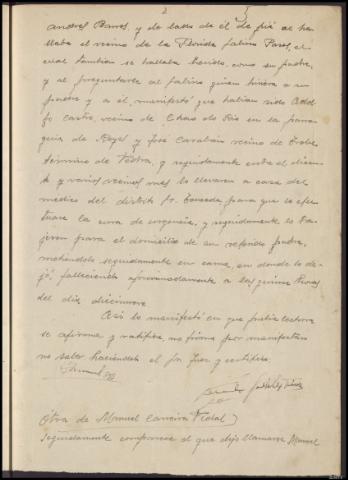 Andres Parros, y de lado de él de pié se ha-
llaba el vecino de la Florida Sabino Pazos, el
cual tambien se hallaba herido, como su padre,
y al preguntarle al Sabino quien hiriera a su
padre y a él, manifestó que habian sido Adol-
fo Castro, vecino de Chao do Rio en la parro-
quia de Reyes y José Carabán vecino de
termino de y seguidamente entre el dicen-
te y varios vecinos mas lo llevaron a casa del
medico del distrito Sr. para que le efec-
tuase la cura de urgencia, y seguidamente lo ba-
jaron para el domicilio de su referido padre,
metiendolo seguidamente en cama, en donde lo de-
jó, falleciendo aproximadamente a las quince horas
del dia diecinueve
Asi lo manifestó en que previa lectura
se afirma y ratifica, no firma por manifestar
no saber haciendolo el Sr Juez y certifico.
Otra de Manuel Caneira Vidal
Seguidamente comparece el que dijo llamarse Manuel